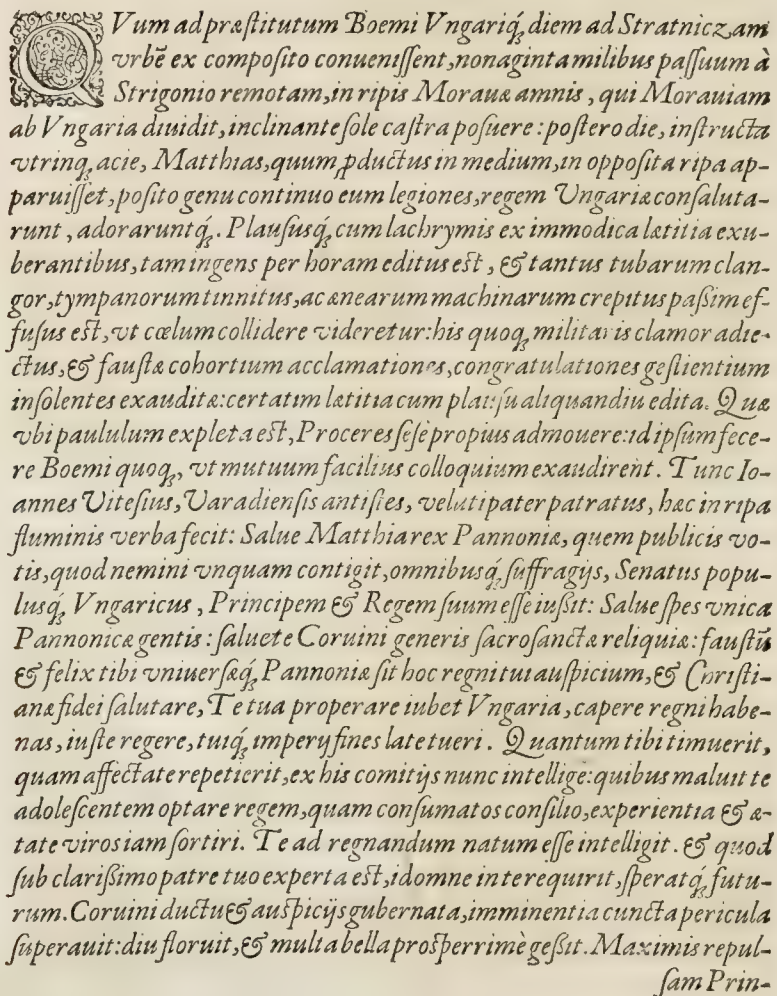 QVum ad præſtitutum Boemi Vngariq́ꝫ diem ad Stratniczam
vrbẽ ex compoſito conueniſſent, nonaginta milibus paſſuum à
Strigonio remotam, in ripis Morauæ amnis, qui Morauiam
ab Vngaria diuidit, inclinante ſole caſtra poſuere: poſtero die, inſtructa
vtrinqꝫ acie, Matthias, quum ꝓductus in medium, in oppoſita ripa ap-
paruiſſet, poſito genu continuo eum legiones, regem Vngariæ conſaluta-
runt, adoraruntq́ꝫ. Plauſusq́ꝫ cum lachrymis ex immodica lætitia exu-
berantibus, tam ingens per horam editus eſt, & tantus tubarum clan-
gor, tympanorum tinnitus, ac ænearum machinarum crepitus paßim ef-
fuſus eſt, vt cœlum collidere videretur: his quoqꝫ militaris clamor adie-
ctus, & fauſtæ cohortium acclamationes, congratulationes geſtientium
inſolentes exauditæ: certatim lætitia cum plauſu aliquandiu edita. Quæ
vbi paululum expleta eſt, Proceres ſeſe propius admouere: id ipſum fece-
re Boemi quoqꝫ, vt mutuum facilius colloquium exaudirent. Tunc Io-
annes Viteſius, Varadienſis antiſtes, velut pater patratus, hæc in ripa
fluminis verba fecit: Salue Matthia rex Pannoniæ, quem publicis vo-
tis, quod nemini vnquam contigit, omnibusq́ꝫ ſuffragijs, Senatus popu-
lusq́ꝫ Vngaricus, Principem & Regem ſuum eſſe iußit: Salue ſpes vnica
Pannonicæ gentis: ſaluete Coruini generis ſacroſanctæ reliquiæ: fauſtũ
& felix tibi vniuerſæq́ꝫ Pannoniæ ſit hoc regni tui auſpicium, & Chriſti-
anæ fidei ſalutare, Te tua properare iubet Vngaria, capere regni habe-
nas, iuſte regere, tuiq́ꝫ imperij fines late tueri. Quantum tibi timuerit,
quam affectate repetierit, ex his comitijs nunc intellige: quibus maluit te
adoleſcentem optare regem, quam conſumatos conſilio, experientia & æ-
tate viros iam ſortiri. Te ad regnandum natum eſſe intelligit. & quod
ſub clarißimo patre tuo experta eſt, id omne in te requirit, ſperatq́ꝫ futu-
rum. Coruini ductu & auſpicijs gubernata, imminentia cuncta pericula
ſuperauit: diu floruit, & multa bella proſperrimè geßit. Maximis repul-
ſam Prin-